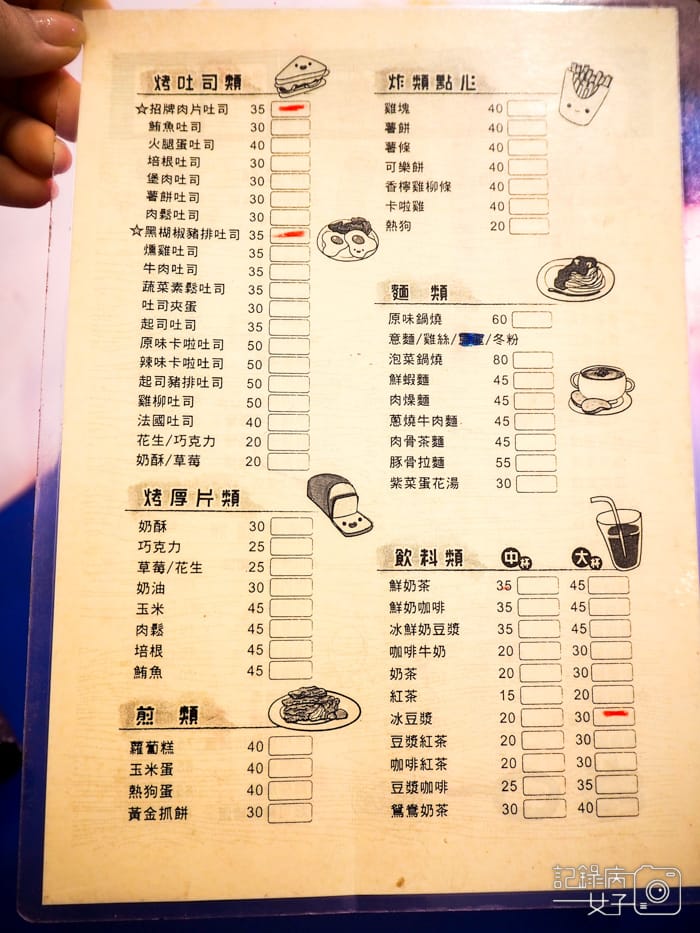 烤吐司類
☆招牌肉片吐司 35
鮪魚吐司 30
火腿蛋吐司 40
培根吐司 30
堡肉吐司 30
薯餅吐司 30
肉鬆吐司 30
☆黑糊椒豬排吐司 35
燻雞吐司 35
牛肉吐司 35
蔬菜素鬆吐司 35
吐司夾蛋 30
起司吐司 35
原味卡啦吐司 50
辣味卡啦吐司 50
起司豬排吐司 50
雞柳吐司 50
法國吐司 40
花生/巧克力 20
奶酥/草莓 20
烤厚片類
奶酥 30
巧克力 25
草莓/花生 25
奶油 30
玉米 45
肉鬆 45
培根 45
鮪魚 45
煎 類
蘿蔔糕 40
玉米蛋 40
熱狗蛋 40
黃金抓餅 30
炸類點心
雞塊 40
薯餅 40
薯條 40
可樂餅 40
香檸雞柳條 40
卡啦雞 40
熱狗 20
麵 類
原味鍋燒 60
意麵/雞絲/ /冬粉
泡菜鍋燒 80
鮮蝦麵 45
肉燥麵 45
蔥燒牛肉麵 45
肉骨茶麵 45
豚骨拉麵 55
紫菜蛋花湯 30
飲料類 中杯 大杯
鮮奶茶 35 45
鮮奶咖啡 35 45
冰鮮奶豆漿 35 45
咖啡牛奶 20 30
奶茶 20 30
紅茶 15 20
冰豆漿 20 30
豆漿紅茶 20 30
咖啡紅茶 20 30
豆漿咖啡 25 35
鴛鴦奶茶 30 40
記錄病
女子